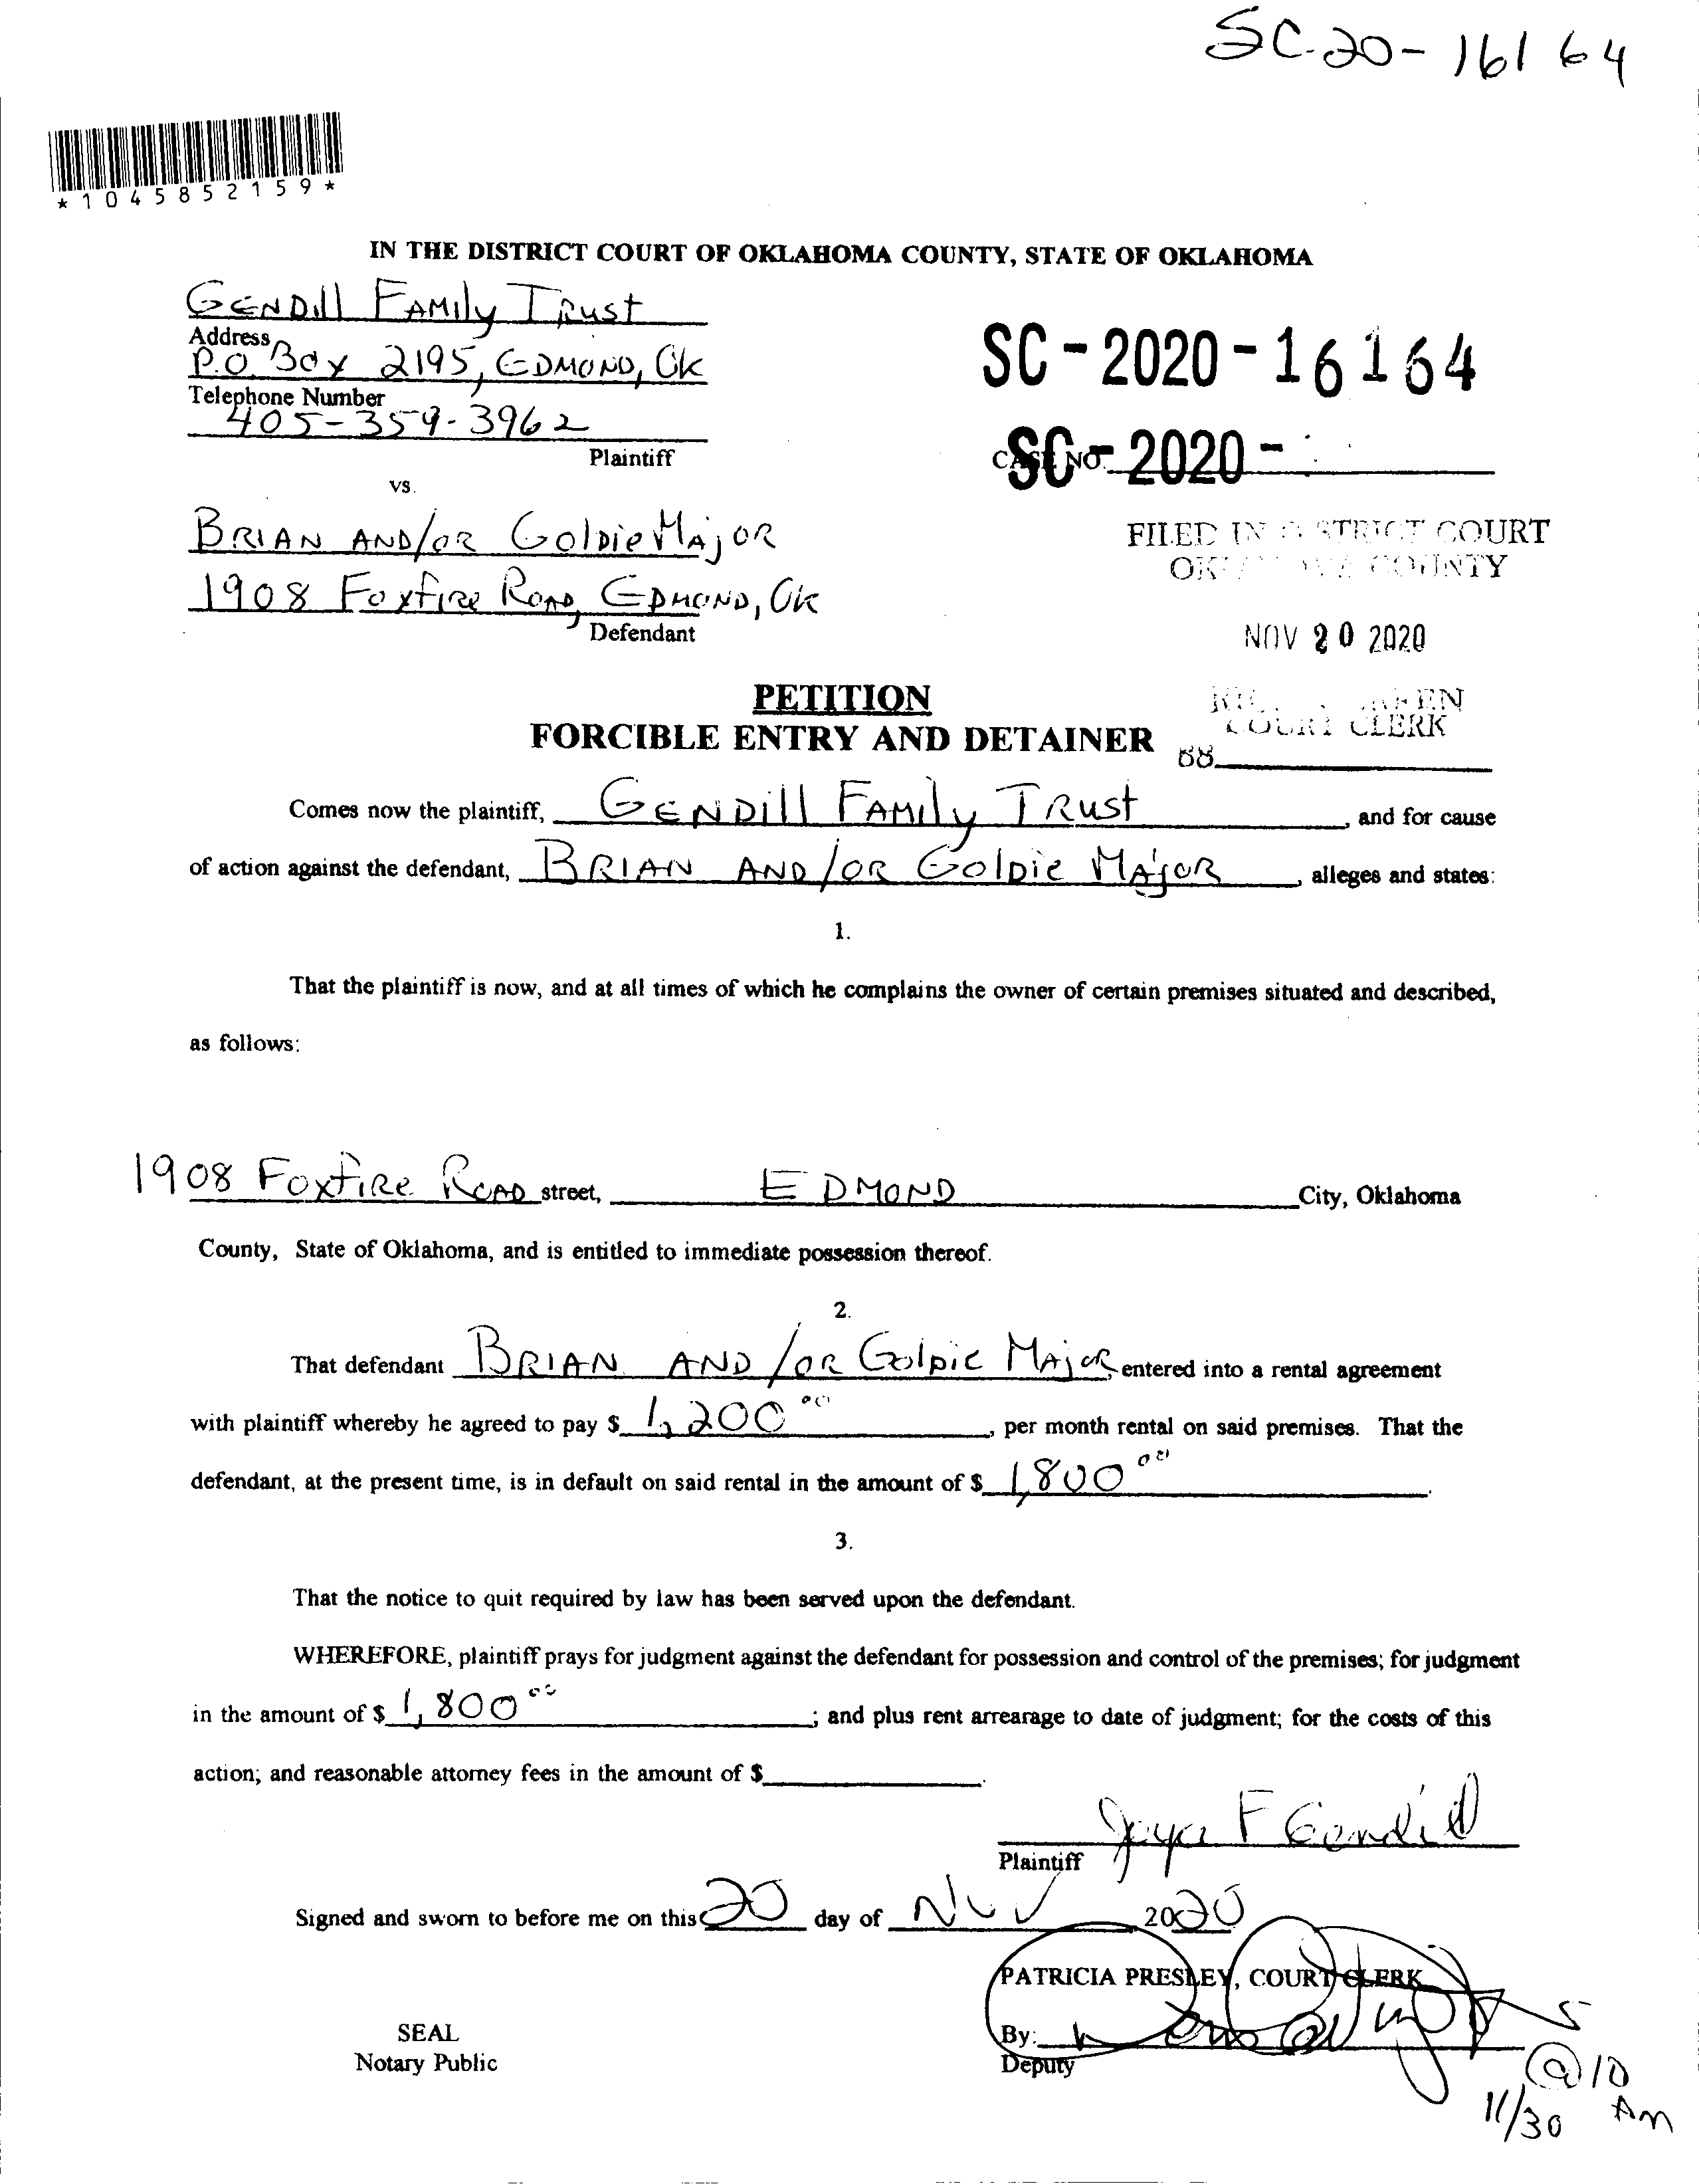 SC-20-16164
*1045852159*
IN THE DISTRICT COURT OF OKLAHOMA COUNTY, STATE OF OKLAHOMA
GENDILL FAMILY TRUST
Address
P.O. Box 2195, EDMOND, OK
Telephone Number
405-359-3962
Plaintiff
vs.
SC-2020-16164
CASE NO. SC-2020-
BRIAN AND/OR GOLDIE MAJOR
1908 FOXFIRE ROAD, EDMOND, OK
Defendant
FILED IN DISTRICT COURT
OKLAHOMA COUNTY
NOV 20 2020
COURT CLERK
PETITION
FORCIBLE ENTRY AND DETAINER
Comes now the plaintiff, GENDILL FAMILY TRUST, and for cause
of action against the defendant, BRIAN AND/OR GOLDIE MAJOR, alleges and states:
1.
That the plaintiff is now, and at all times of which he complains the owner of certain premises situated and described,
as follows:
1908 FOXFIRE ROAD street, EDMOND City, Oklahoma
County, State of Oklahoma, and is entitled to immediate possession thereof.
2.
That defendant BRIAN AND/OR GOLDIE MAJOR, entered into a rental agreement
with plaintiff whereby he agreed to pay $ 1,200 00, per month rental on said premises. That the
defendant, at the present time, is in default on said rental in the amount of $ 1,800 00.
3.
That the notice to quit required by law has been served upon the defendant.
WHEREFORE, plaintiff prays for judgment against the defendant for possession and control of the premises; for judgment
in the amount of $ 1,800 00; and plus rent arrearage to date of judgment; for the costs of this
action; and reasonable attorney fees in the amount of $ .
F Gendill
Plaintiff
Signed and sworn to before me on this 20 day of Nov 2020
PATRICIA PRESLEY, COURT CLERK
SEAL
Notary Public
By:
Deputy
@ 10
11/30 Am